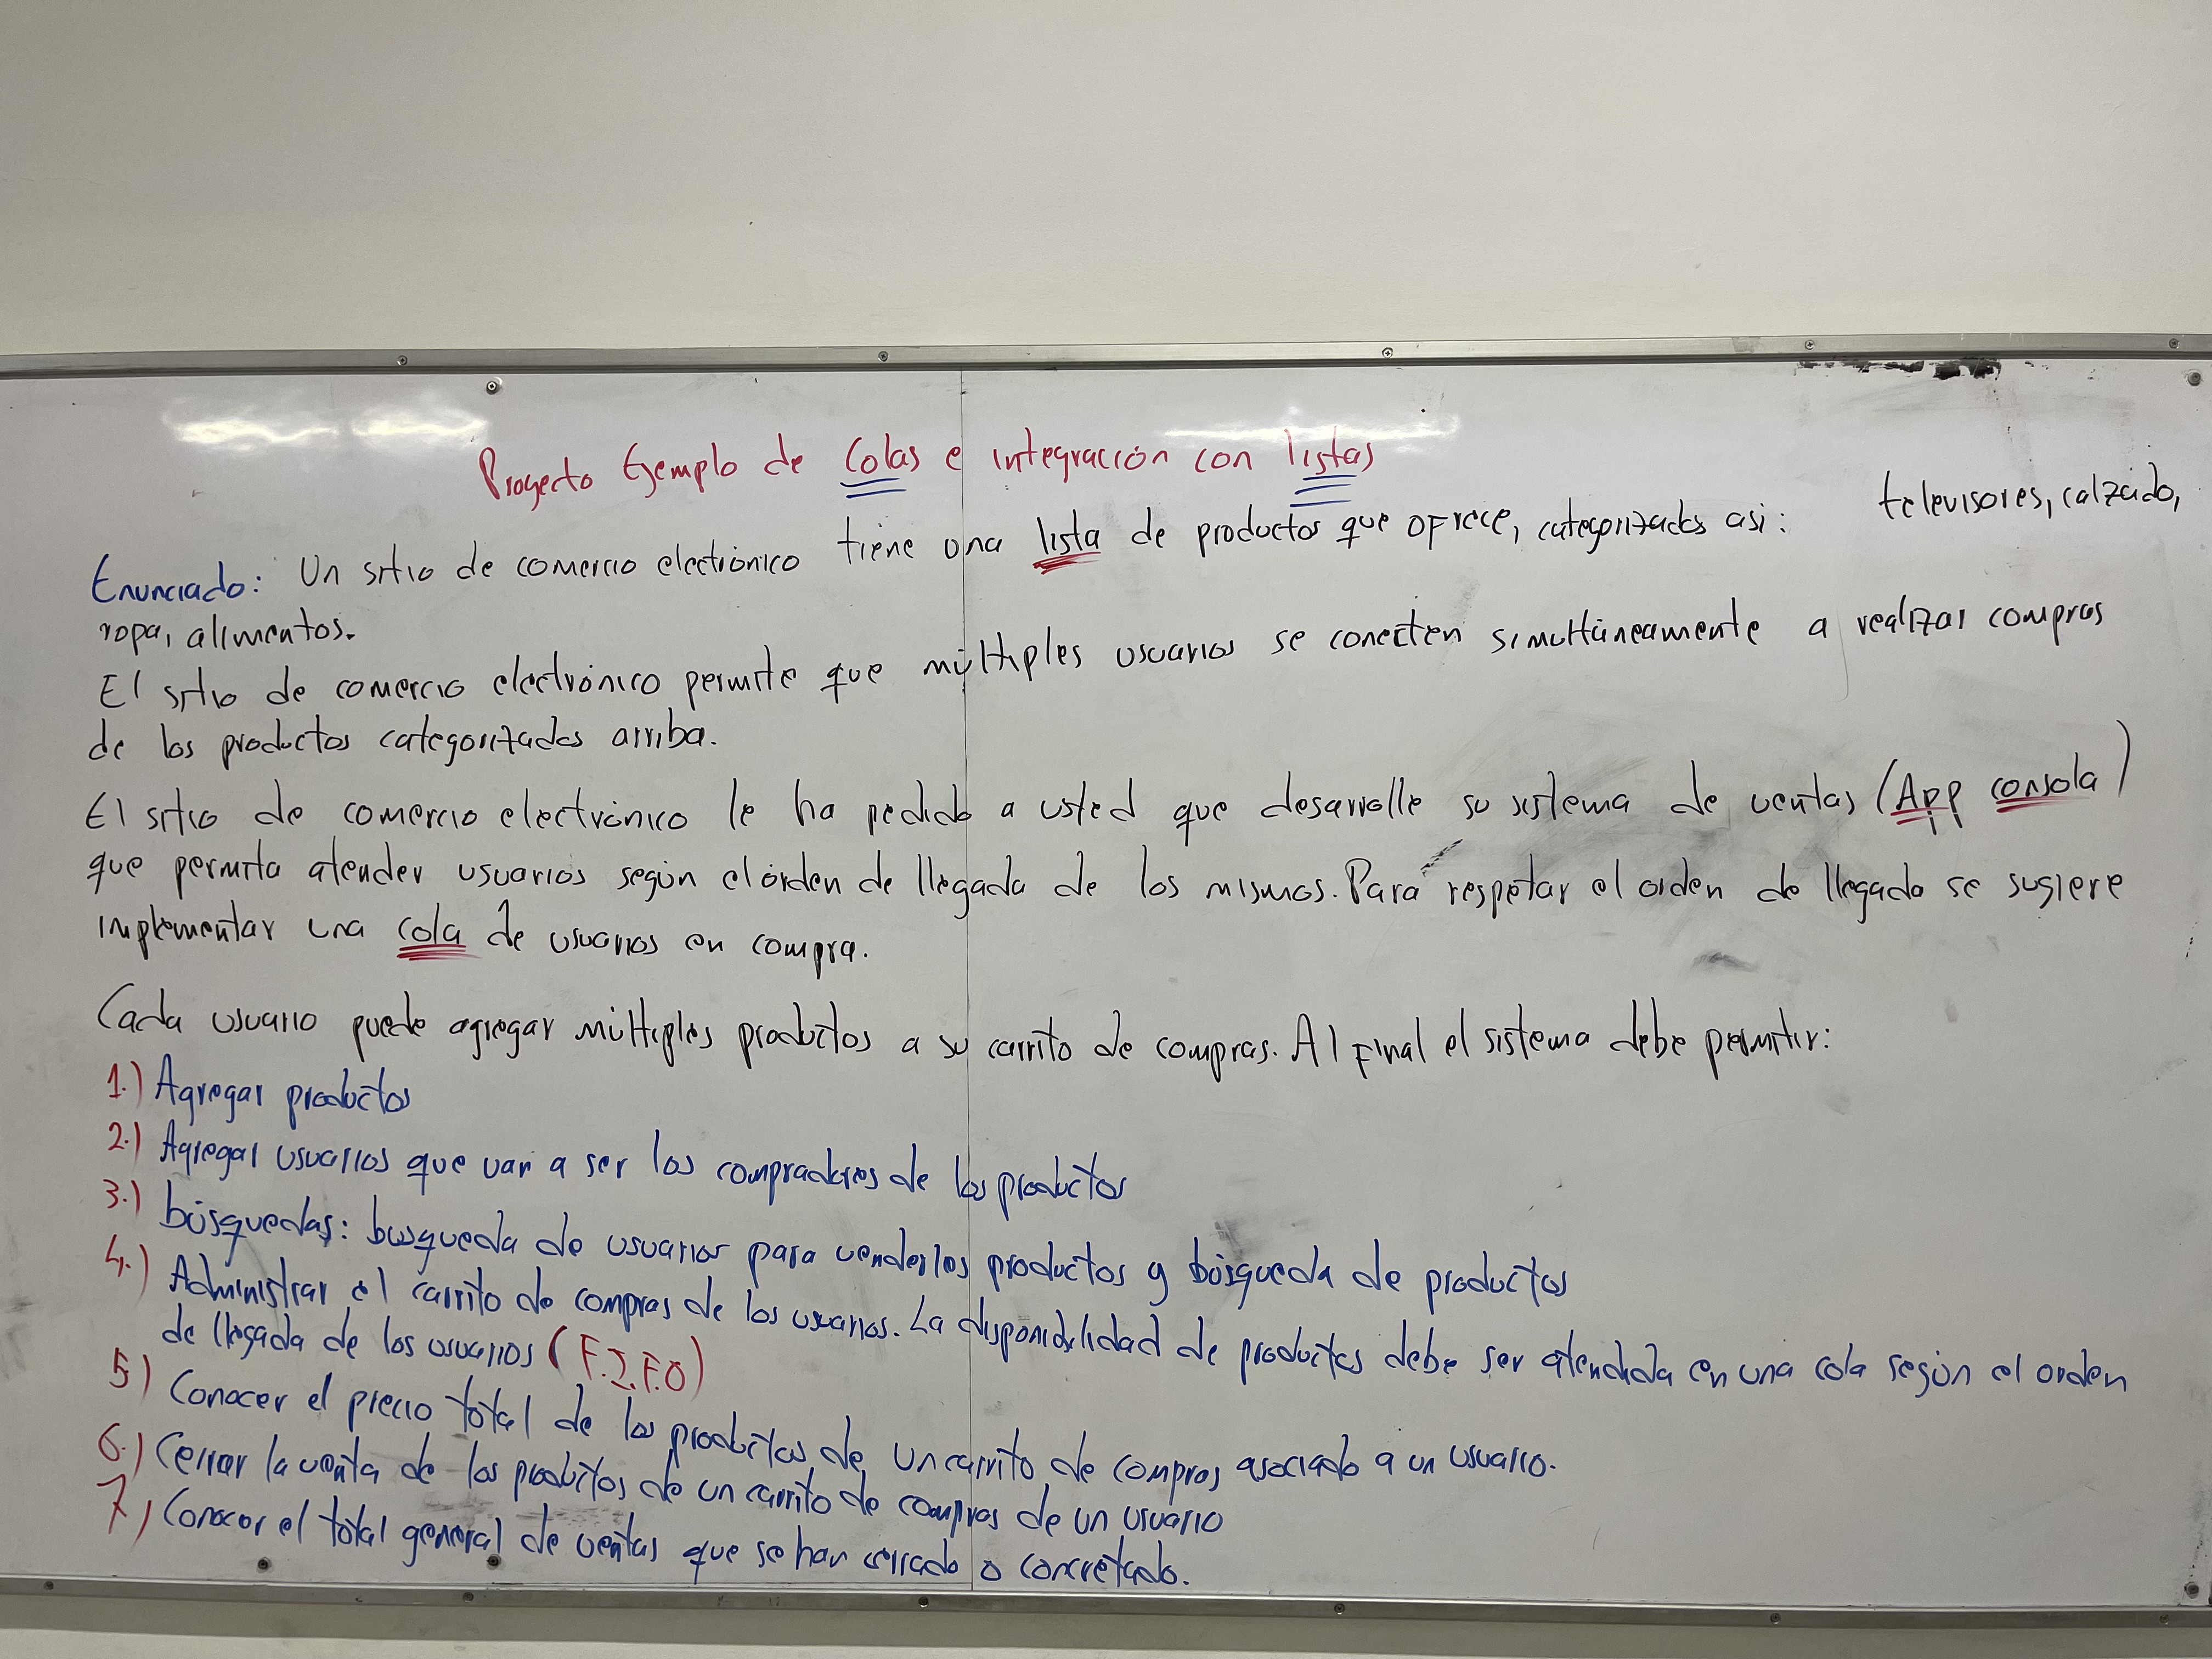 Proyecto Ejemplo de Colas e integración con listas
Enunciado: Un sitio de comercio electrónico tiene una lista de productos que ofrece, categorizados asi: televisores, calzado,
ropa, alimentos.
El sitio de comercio electrónico permite que múltiples usuarios se conecten simultáneamente a realizar compras
de los productos categorizados arriba.
El sitio de comercio electrónico le ha pedido a usted que desarrolle su sistema de ventas (App consola)
que permita atender usuarios según el órden de llegada de los mismos. Para respetar el orden de llegada se sugiere
implementar una cola de usuarios en compra.
Cada usuario puede agregar múltiples productos a su carrito de compras. Al final el sistema debe permitir:
1.) Agregar productos
2.) Agregar usuarios que van a ser los compradores de los productos
3.) búsquedas: busqueda de usuarios para venderles productos y búsqueda de productos
4.) Administrar el carrito de compras de los usuarios. La disponibilidad de productos debe ser atendida en una cola según el orden
de llegada de los usuarios (F.I.F.O)
5) Conocer el precio total de los productos de un carrito de compras asociado a un usuario.
6.) Cerrar la venta de los productos de un carrito de compras de un usuario
7.) Conocer el total general de ventas que se han cerrado o concretado.